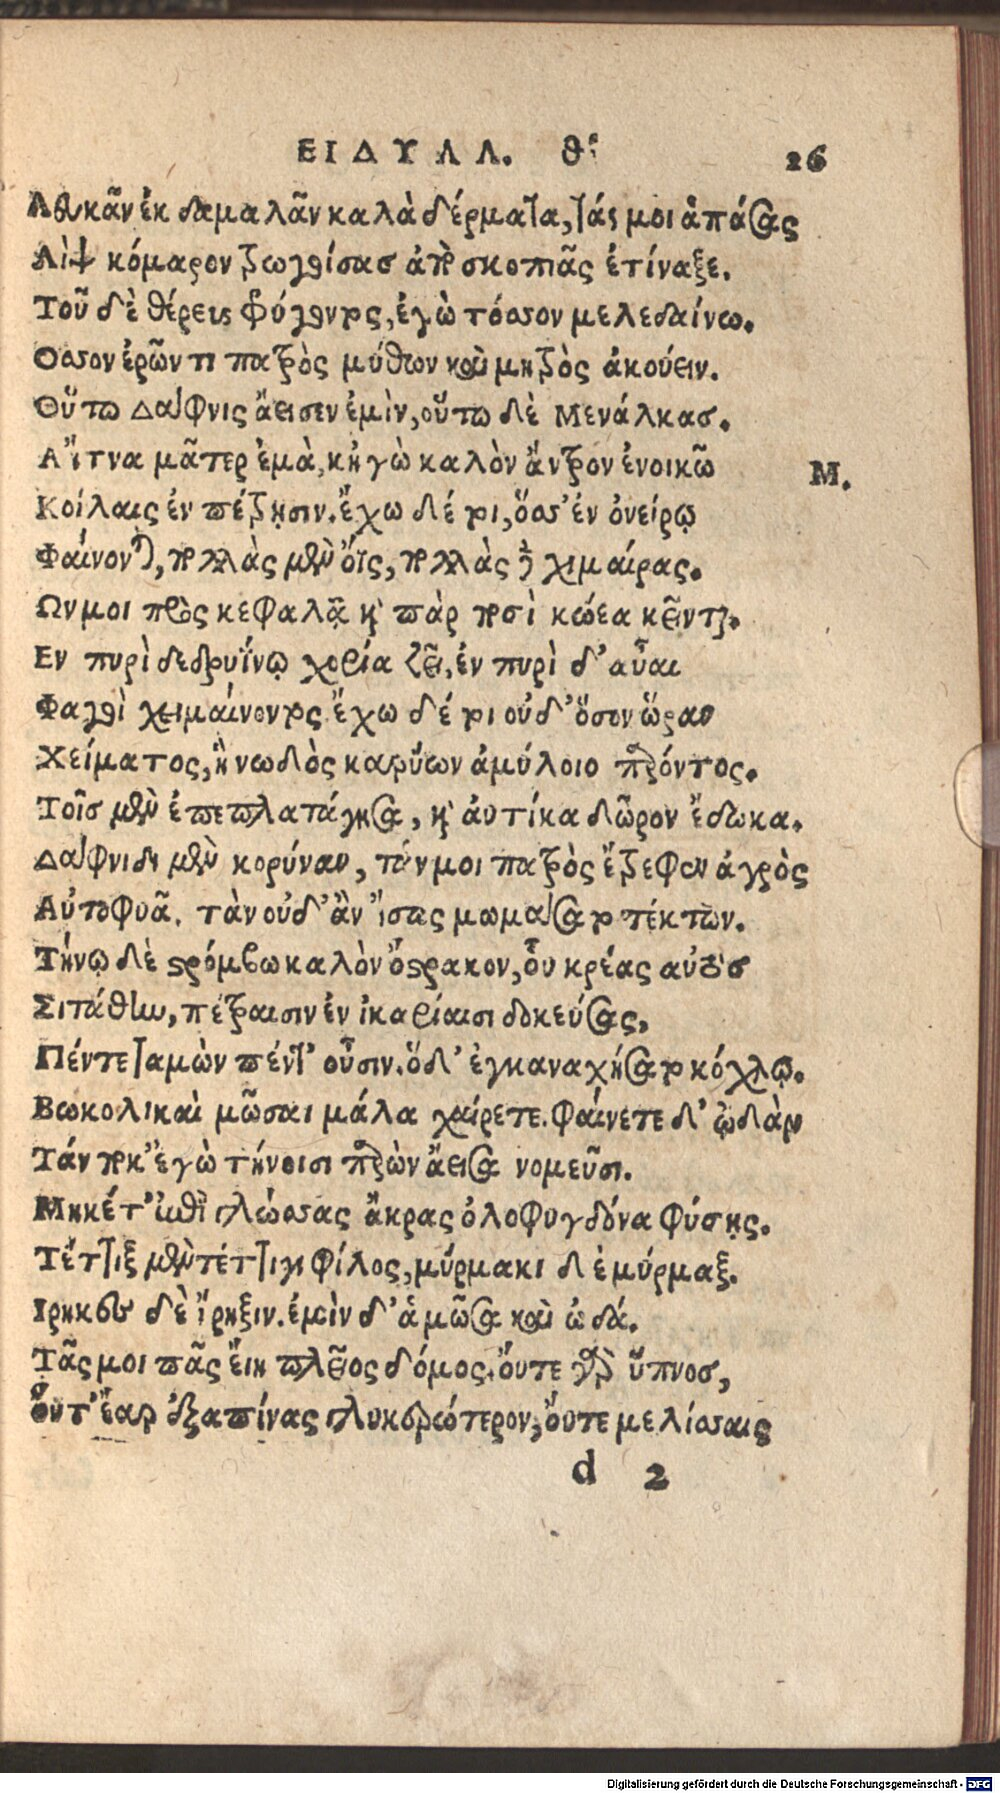 ΕΙΔΥΛΛ. θʹ. 26
Λευκᾶν ἐκ δαμαλᾶν καλὰ δέρματα, τάς μοι ἁπάσας
Λὶψ κόμαρον τρωγοίσας ἀπὸ σκοπιᾶς ἐτίναξε.
Τοῦ δὲ θέρευς φρύγοντος, ἐγὼ τόσσον μελεδαίνω.
Οσσον ἐρῶντι πατρὸς μύθων καὶ μητρὸς ἀκούειν.
Οὕτω Δάφνις ἄεισεν ἐμὶν, οὕτω δὲ Μενάλκας.
Αἴτνα μᾶτερ ἐμὰ, κἠγὼ καλὸν ἄντρον ἐνοικῶ Μ.
Κοίλαις ἐν πέτρησιν. ἔχω δέ τοι, ὅσσ' ἐν ὀνείρῳ
Φαίνονται, πολλὰς μὲν ὄϊς, πολλὰς δὲ χιμαίρας.
Ων μοι πρὸς κεφαλᾷ κὶ πὰρ ποσὶ κώεα κεῖνται.
Εν πυρὶ δὲ δρυΐνῳ χορία ζεῖ, ἐν πυρὶ δ' αὖαι
Φαγοὶ χειμαίνοντος ἔχω δέ τοι οὐδ' ὅσον ὥραν
Χείματος, ἢ νωδὸς καρύων ἀμύλοιο παρόντος.
Τοῖς μὲν ἐπεπλατάγησα, κὶ ἀυτίκα δῶρον ἔδωκα.
Δάφνιδι μὲν κορύναν, τάν μοι πατρὸς ἔτρεφεν ἀγρὸς
Αὐτοφυᾶ. τὰν οὐδ' ἂν ἴσως μωμάσατο τέκτων.
Τήνῳ δὲ στρόμβω καλὸν ὄστρακον, οὗ κρέας αὐτὸς
Σιτάθην, πέτραισιν ἐν ἰκαρίαισι δοκεύσας,
Πέντε ταμὼν πέντ' οὖσιν. ὅδ' ἐγκαναχήσατο κόχλῳ.
Βωκολικαὶ μῶσαι μάλα χαίρετε. φαίνετε δ' ᾠδὰν
Τάν ποκ' ἐγὼ τήνοισι παρὼν ἄεισα νομεῦσι.
Μηκέτ' ἐπὶ γλώσσας ἄκρας ὀλοφυγδόνα φύσῃς.
Τέττιξ μὲν τέττιγι φίλος, μύρμακι δὲ μύρμαξ.
Ιρηκες δὲ ἴρηξιν. ἐμὶν δ' ἁ μῶσα καὶ ὠδά.
Τᾶς μοι πᾶς εἴη πλεῖος δόμος. ὄυτε γὰρ ὕπνος,
Οὔτ' ἔαρ ἐξαπίνας γλυκερώτερον, ὄυτε μελίσσαις
d 2
Digitalisierung gefördert durch die Deutsche Forschungsgemeinschaft - DFG